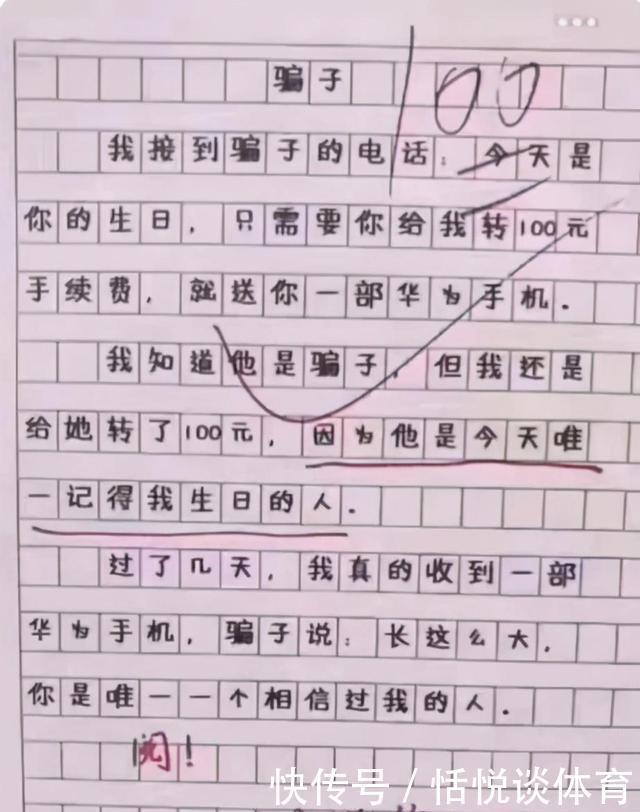 骗子 100
我接到骗子的电话：今天是
你的生日，只需要你给我转100元
手续费，就送你一部华为手机。
我知道他是骗子，但我还是
给她转了100元，因为他是今天唯
一记得我生日的人。
过了几天，我真的收到一部
华为手机，骗子说：长这么大，
你是唯一一个相信过我的人。
阅！
快传号/恬悦谈体育